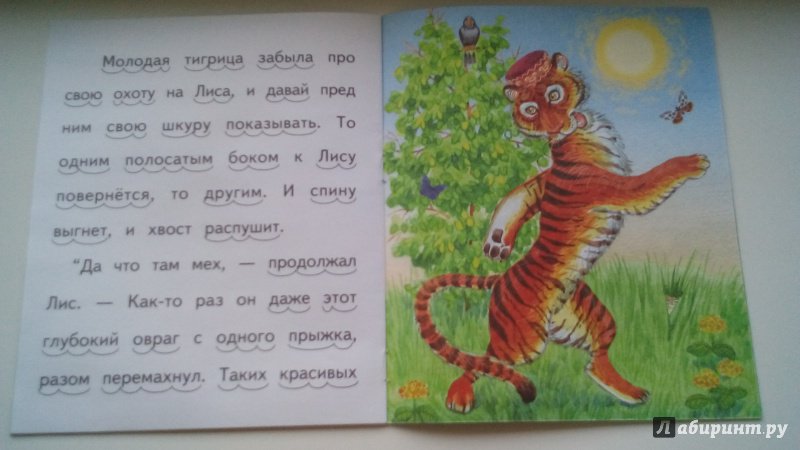 Молодая тигрица забыла про
свою охоту на Лиса, и давай пред
ним свою шкуру показывать. То
одним полосатым боком к Лису
повернётся, то другим. И спину
выгнет, и хвост распушит.
"Да что там мех, — продолжал
Лис. — Как-то раз он даже этот
глубокий овраг с одного прыжка,
разом перемахнул. Таких красивых
Лабиринт.ру